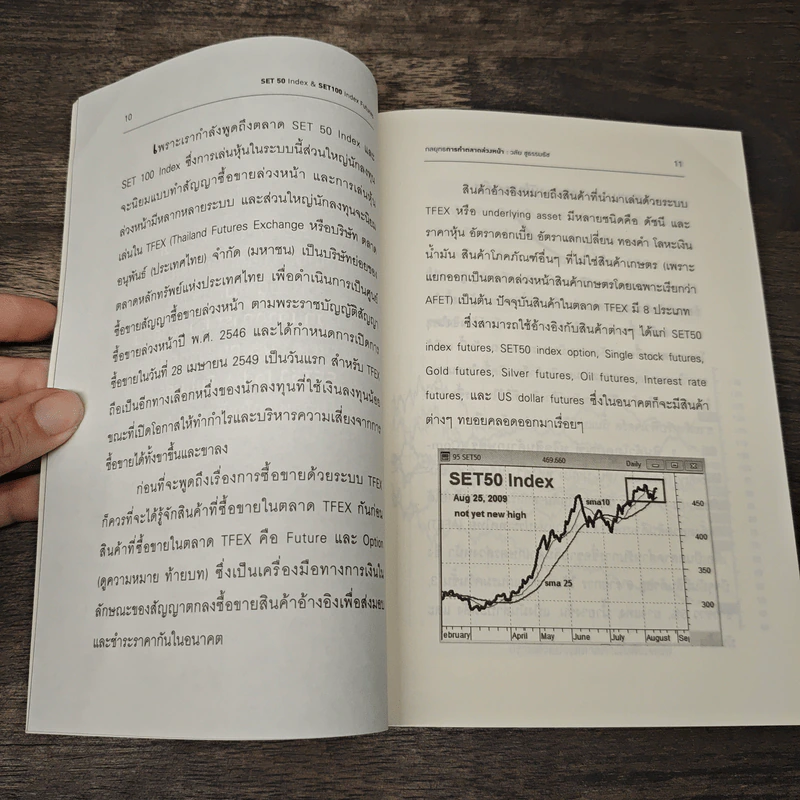 10
SET 50 Index & SET100 Index Futures
เพราะเรากำลังพูดถึงตลาด SET 50 Index และ
SET 100 Index ซึ่งการเล่นหุ้นในระบบนี้ส่วนใหญ่นักลงทุน
จะนิยมแบบทำสัญญาซื้อขายล่วงหน้า และการเล่นหุ้น
ล่วงหน้ามีหลากหลายระบบ และส่วนใหญ่นักลงทุนจะนิยม
เล่นใน TFEX (Thailand Futures Exchange หรือบริษัท ตลาด
อนุพันธ์ (ประเทศไทย) จำกัด (มหาชน) เป็นบริษัทย่อยของ
ตลาดหลักทรัพย์แห่งประเทศไทย เพื่อดำเนินการเป็นศูนย์
ซื้อขายสัญญาซื้อขายล่วงหน้า ตามพระราชบัญญัติสัญญา
ซื้อขายล่วงหน้าปี พ.ศ. 2546 และได้กำหนดการเปิดการ
ซื้อขายในวันที่ 28 เมษายน 2549 เป็นวันแรก สำหรับ TFEX
ถือเป็นอีกทางเลือกหนึ่งของนักลงทุนที่ใช้เงินลงทุนน้อย
ขณะที่เปิดโอกาสให้ทำกำไรและบริหารความเสี่ยงจากการ
ซื้อขายได้ทั้งขาขึ้นและขาลง
ก่อนที่จะพูดถึงเรื่องการซื้อขายด้วยระบบ TFEX
ก็ควรที่จะได้รู้จักสินค้าที่ซื้อขายในตลาด TFEX กันก่อน
สินค้าที่ซื้อขายในตลาด TFEX คือ Future และ Option
(ดูความหมาย ท้ายบท) ซึ่งเป็นเครื่องมือทางการเงินใน
ลักษณะของสัญญาตกลงซื้อขายสินค้าอ้างอิงเพื่อส่งมอบ
และชำระราคากันในอนาคต
กลยุทธการทำตลาดล่วงหน้า : วสัน สุธรรมธัส
11
สินค้าอ้างอิงหมายถึงสินค้าที่นำมาเล่นด้วยระบบ
TFEX หรือ underlying asset มีหลายชนิดคือ ดัชนี และ
ราคาหุ้น อัตราดอกเบี้ย อัตราแลกเปลี่ยน ทองคำ โลหะเงิน
น้ำมัน สินค้าโภคภัณฑ์อื่นๆ ที่ไม่ใช่สินค้าเกษตร (เพราะ
แยกออกเป็นตลาดล่วงหน้าสินค้าเกษตรโดยเฉพาะเรียกว่า
AFET) เป็นต้น ปัจจุบันสินค้าในตลาด TFEX มี 8 ประเภท
ซึ่งสามารถใช้อ้างอิงกับสินค้าต่างๆ ได้แก่ SET50
index futures, SET50 index option, Single stock futures,
Gold futures, Silver futures, Oil futures, Interest rate
futures, และ US dollar futures ซึ่งในอนาคตก็จะมีสินค้า
ต่างๆ ทยอยคลอดออกมาเรื่อยๆ
95 SET50 469.660 Daily
SET50 Index
Aug 25, 2009
not yet new high
sma10
sma 25
450
400
350
300
ebruary April May June July August Sep